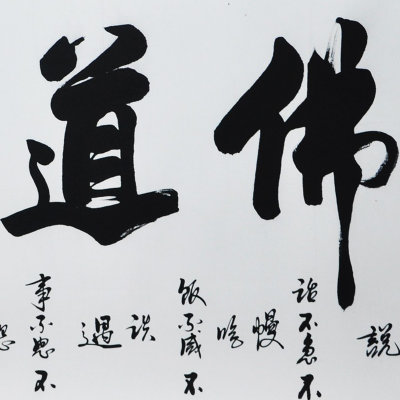 佛道
說
話不急不
慢
飯不咸不
遇
事不思不